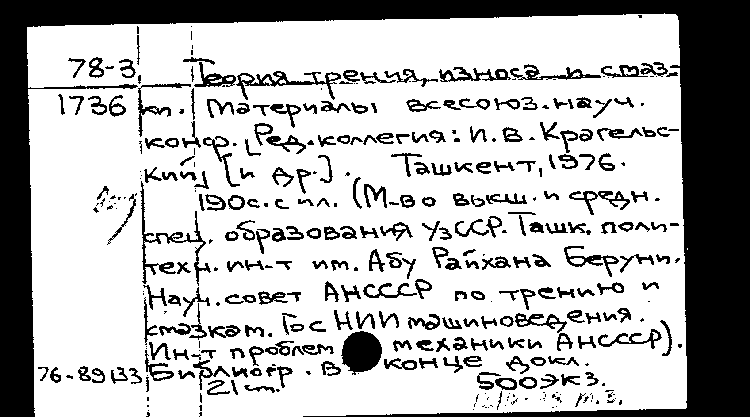 78-3 Теория трения, износа и смаз-
1736 ки. Материалы всесоюз. науч.
конф. [Ред. коллегия: И. В. Крагельс-
кий] [и др.]. Ташкент, 1976.
190с. с ил. (М-во высш. и средн.
спец. образования УзССР. Ташк. поли-
техн. ин-т им. Абу Райхана Беруни.
Науч. совет АНСССР по трению и
смазкам. Гос НИИ машиноведения.
Ин-т проблем механики АНСССР).
76-89133 Библиогр. в конце докл.
21 см. 500экз.